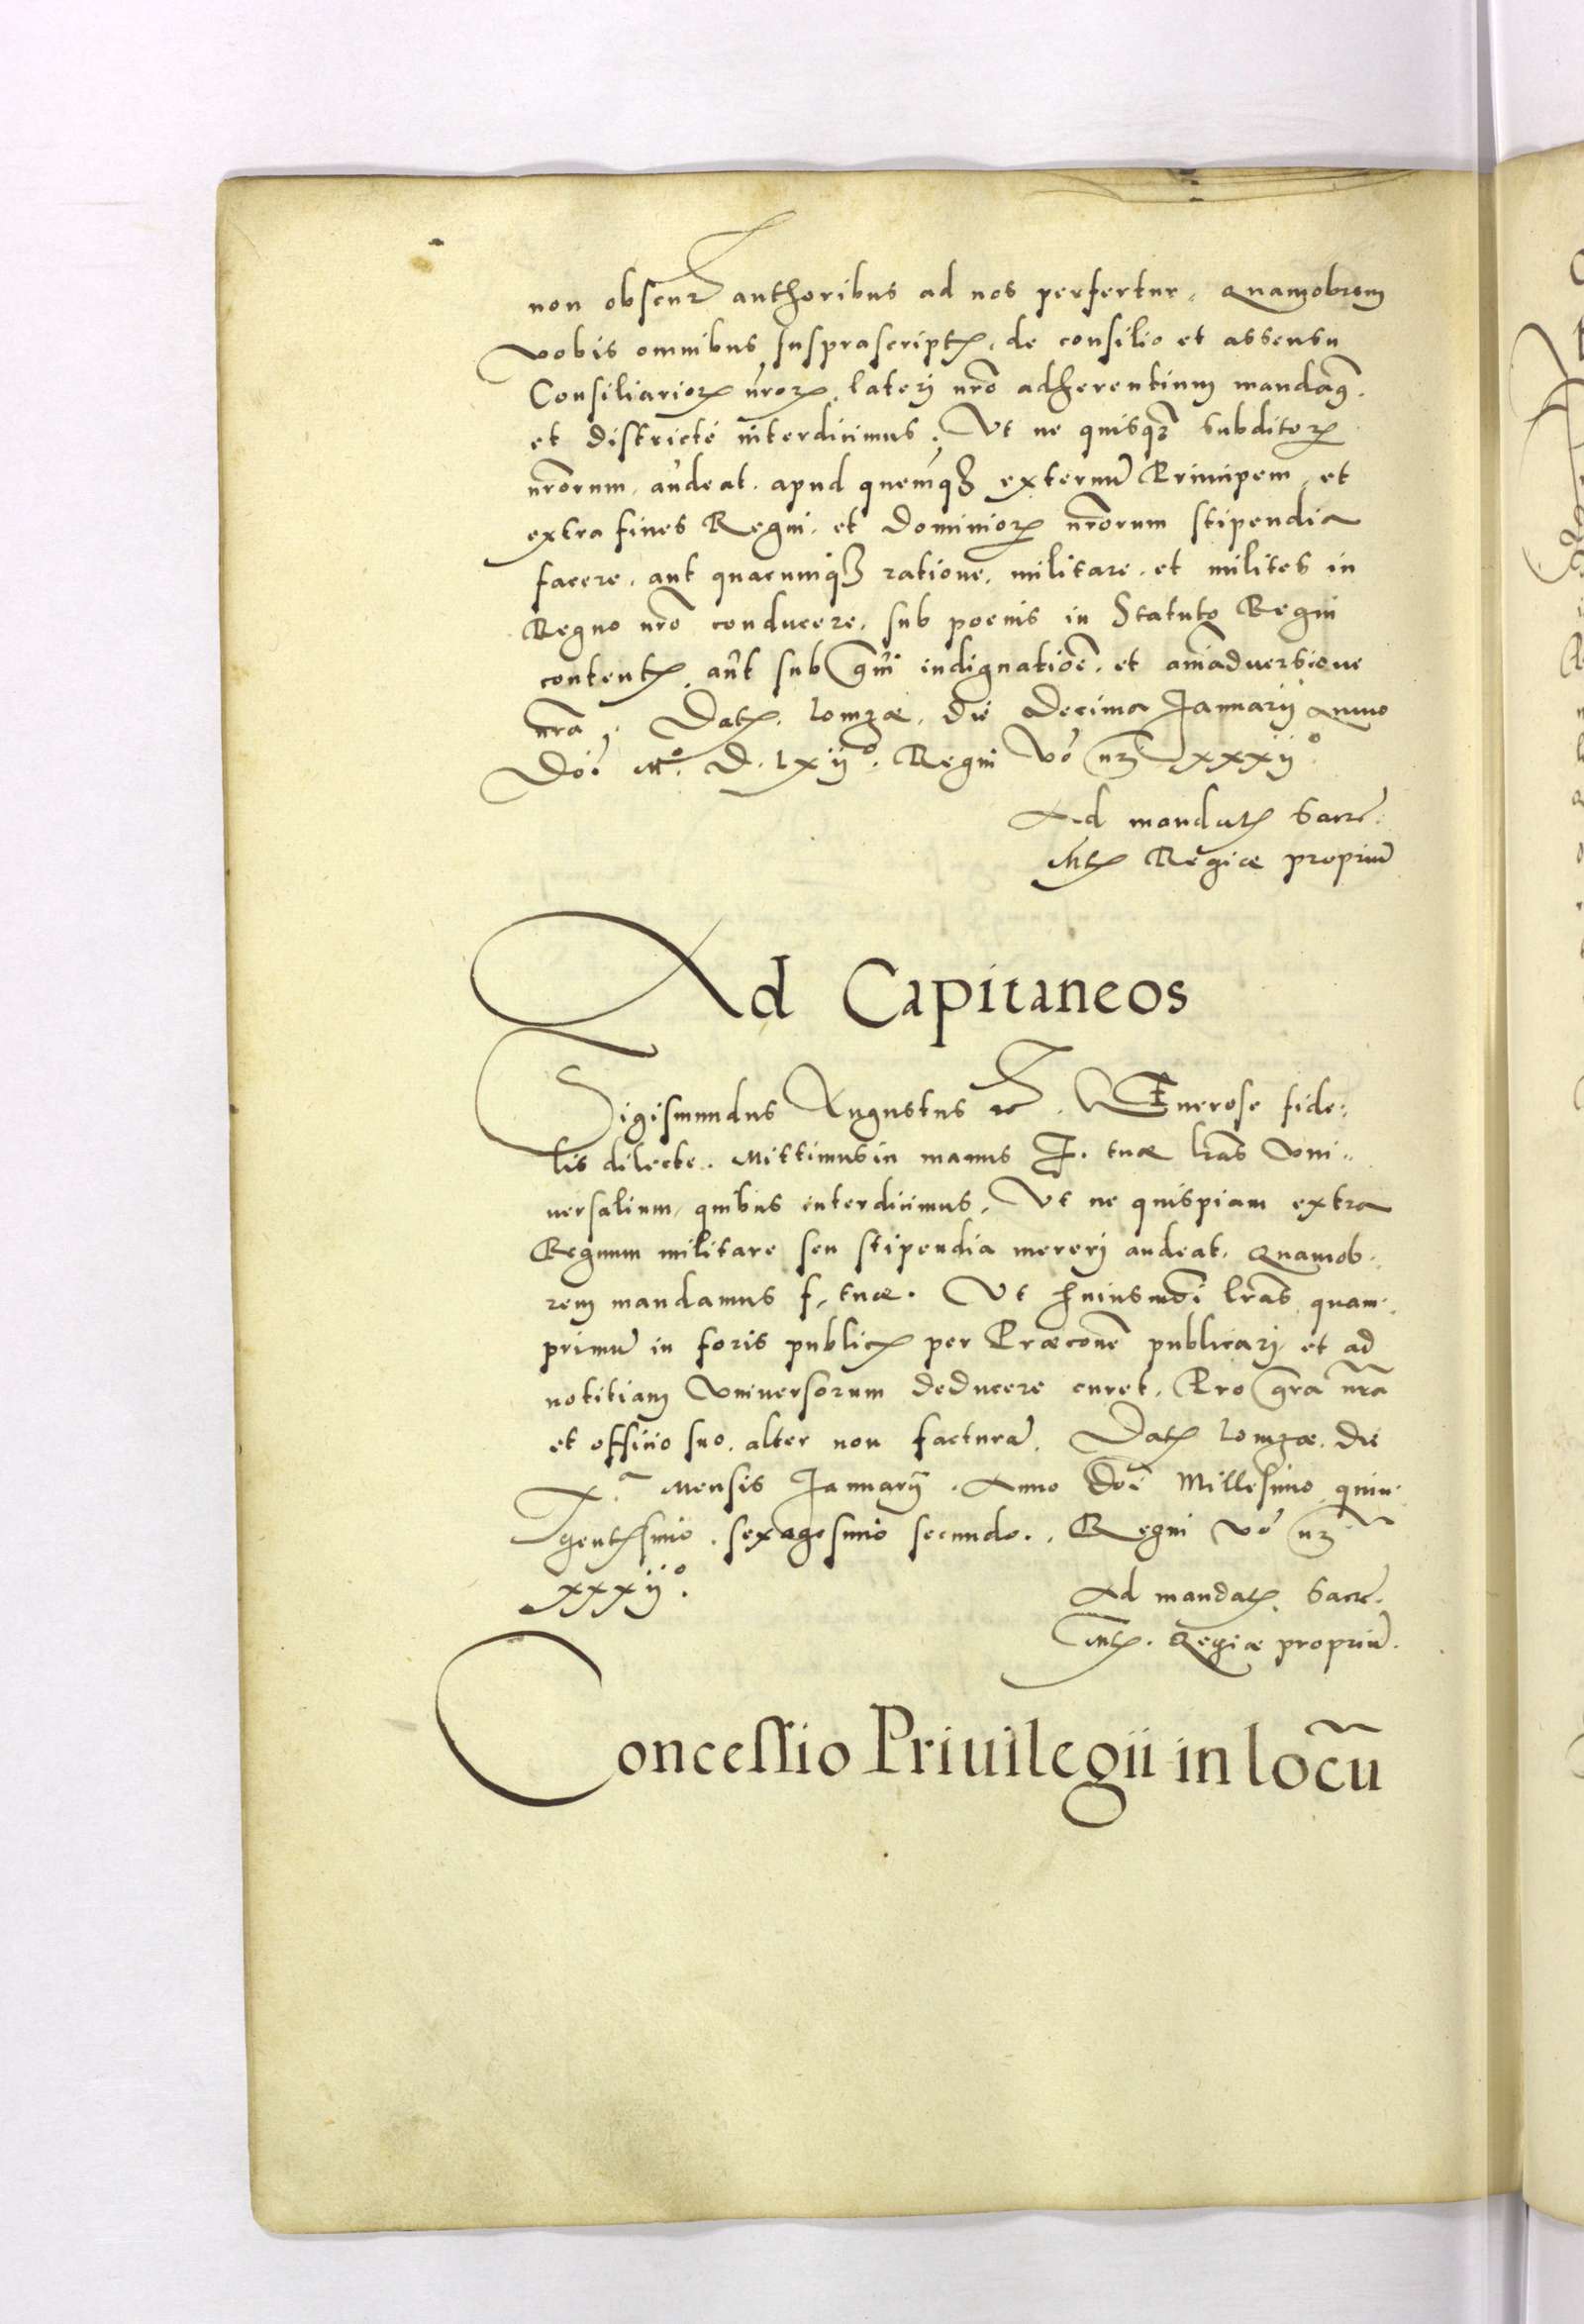 non obscur̃ authoribus ad nos perfertur. Quamobrem
vobis omnibus suprascriptꝭ, de consilio et assensu
Consiliarioꝝ nr̃oꝝ, lateri nr̃o adherentium mandaꝰ.
et districte interdicimus. Ut ne quisqꝫ subditoꝝ
nr̃orum, audeat. apud quemqꝫ externũ Principem, et
extra fines Regni. et Dominioꝝ nr̃orum stipendia
facere. aut quacumqꝫ ratione, militare. et milites in
Regno nr̃o conducere, sub poenis in Statuto Regni
contentꝭ. aut sub gũi indignatiõe. et aĩaduersione
nr̃a. Datꝭ. Lomzæ. die Decima Januarij Anno
Dõi Mº. D. Lxijº. Regni võ nr̃i xxxijº.
Ad mandatꝭ Sacrẽ.
Mtꝭ Regiæ propriũ
Ad Capitaneos
Sigismundus Augustus ꝛc. Generose fide-
lis dilecte. Mittimus in manus F. tuæ lr̃as Uni-
uersalium, quibus interdicimus, Ut ne quispiam extra
Regnum militare seu stipendia mereri audeat. Quamob-
rem mandamus f. tuæ. Ut huiusmõi lr̃as quam-
primũ in foris publicꝭ per Præconẽ publicari et ad
notitiam Universorum deducere curet. Pro gr̃a nr̃a
et officio suo. aliter non facturã. Datꝭ Lomzæ. die
X.ª Mensis Januarij. Anno Dõi Millesimo quin-
gentꝭsimo. sexagesimo secundo. Regni võ nr̃i
xxxijº.
Ad mandatꝭ. Sacrẽ.
Mtꝭ. Regiæ propriũ.
Concessio Priuilegii in locũ